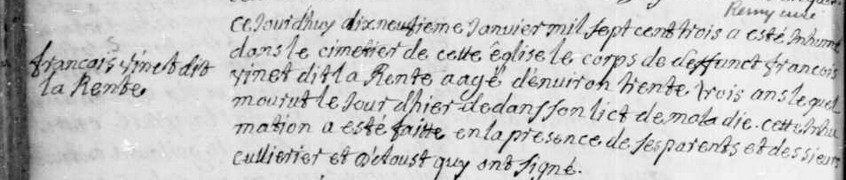 Remy curé
ce Jourdhuy dixneufieme Janvier mil sept cent trois a esté Inhumé
dans le cimetier de cette église le corps de deffunct francois
francois vinet dit
la Rente
vinet dit la Rente aagé dénuiron trente trois ans lequel
mourut le Jour dhier dedans son lict de maladie. cette Inhu
mation a esté faitte en la presence de ses parents et des sieurs
cullierier et quy ont signé.